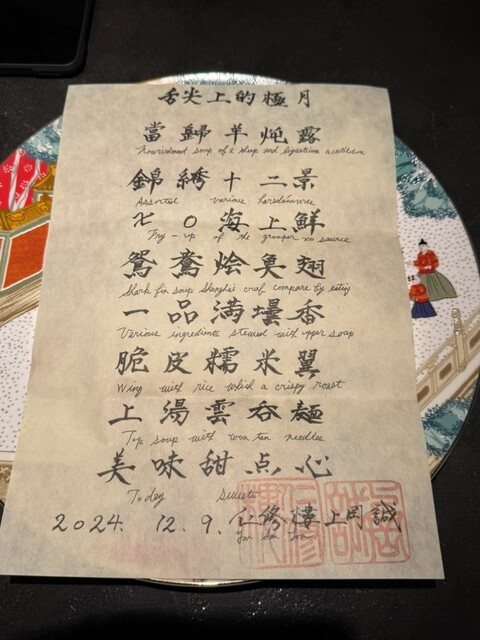 舌尖上的極月
當歸羊炖露
Nourishment soup of a sheep and ligustium acutilobum
錦綉十二景
Assorted various horsd'oeuvre
七〇海上鮮
Fry-up of the grouper xo sauce
鴛鴦燴魚翅
Shark fin soup Shanghai crab compare by eating
一品満壜香
Various ingredients stewed with upper soup
脆皮糯米翼
Wing with rice which a crispy roast
上湯雲呑麺
Top soup with won ton needles
美味甜点心
Today sweets
2024. 12. 9. 仁修樓上岡誠